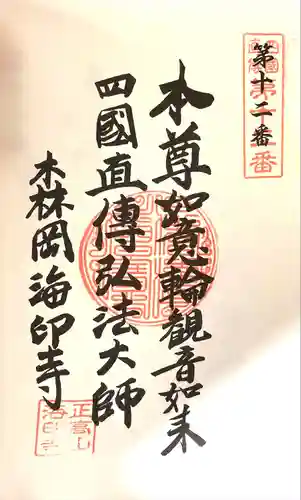 第十二番
本尊如意輪観音如来
四國直傳弘法大師
森岡海印寺